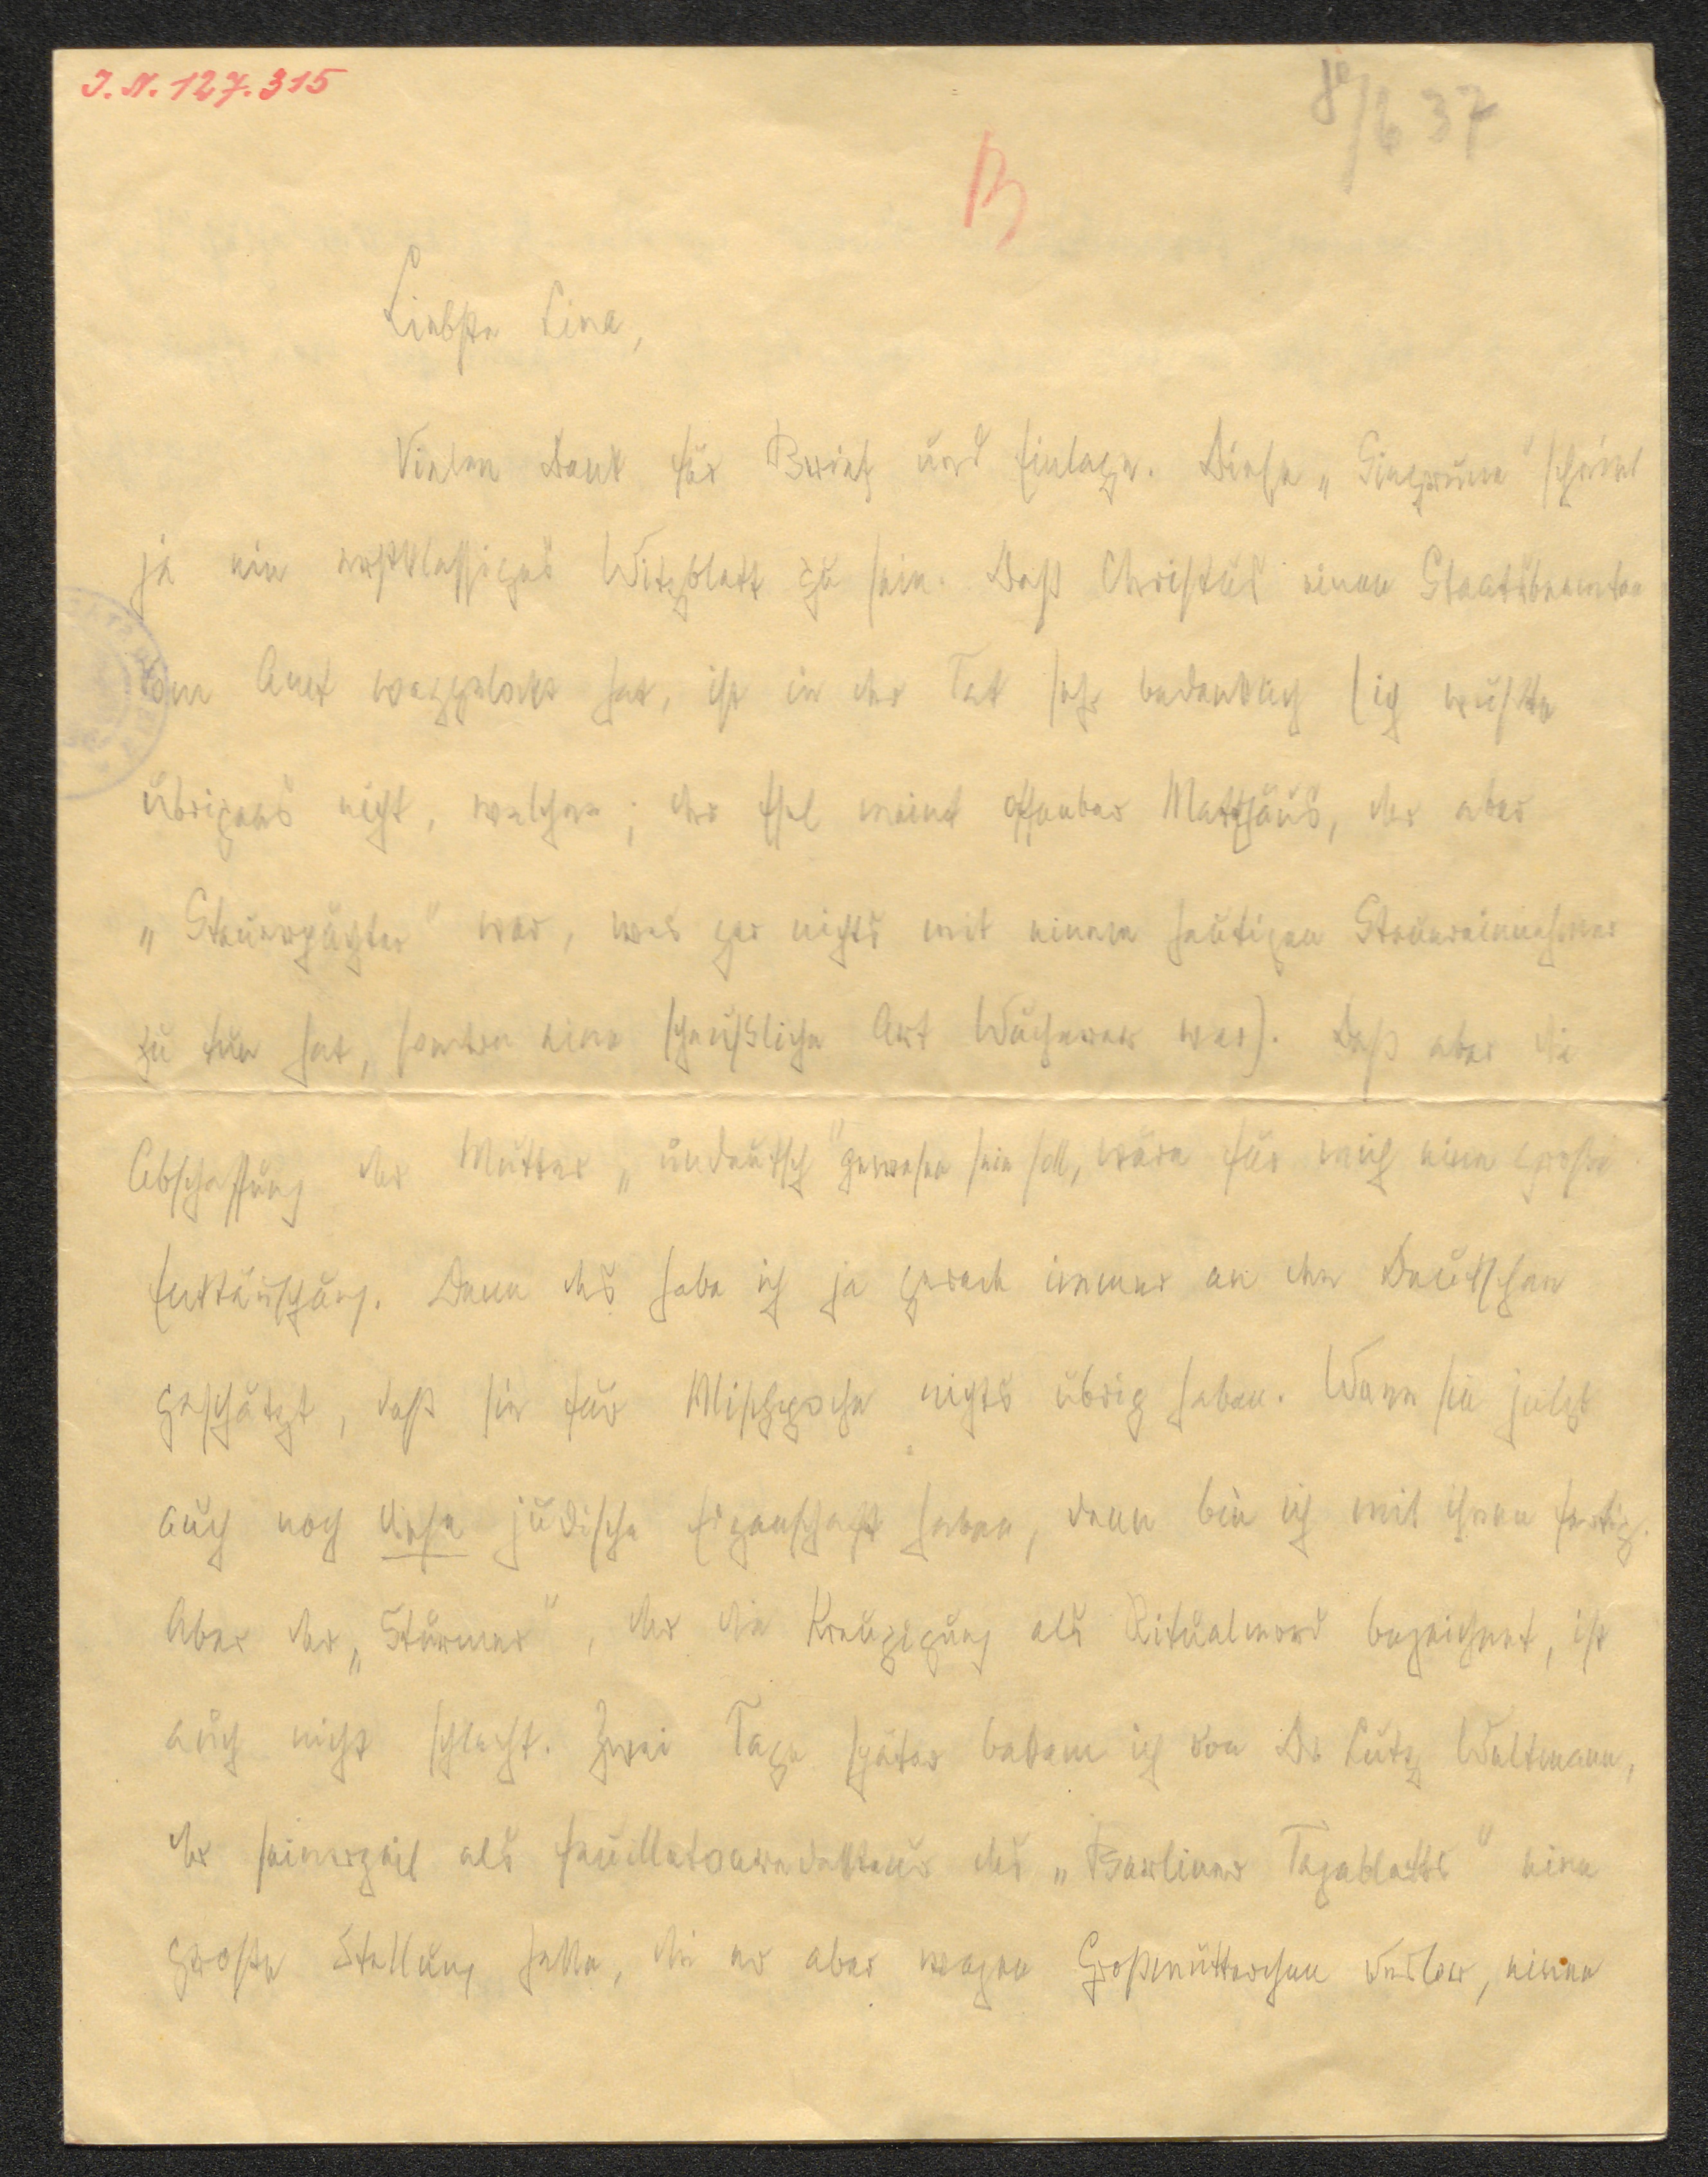 I. N. 127.315
B
/6 37
Liebste Lina,
Vielen Dank für Brief und Einlage. Diese „Siegrune" scheint
ja ein erstklassiges Witzblatt zu sein. Daß Christus einen Staatsbeamten
vom Amt weggelockt hat, ist in der Tat sehr bedenklich (ich wußte
übrigens nicht, welchen; der Esel meint offenbar Matthäus, der aber
„Steuerpächter" war, was gar nichts mit einem heutigen Steuereinnehmer
zu tun hat, sondern eine scheußliche Art Wucherer war). Daß aber die
Abschaffung der Mutter „undeutsch" gewesen sein soll, wäre für mich eine große
Enttäuschung. Denn das habe ich ja gerade immer an den Deutschen
geschätzt, daß sie für Mischpoche nichts übrig haben. Wenn sie jetzt
auch noch diese jüdische Eigenschaft haben, dann bin ich mit ihnen fertig.
Aber der „Stürmer", der die Kreuzigung als Ritualmord bezeichnet, ist
auch nicht schlecht. Zwei Tage später bekam ich von Dr Lutz Weltmann,
der seinerzeit als Feuilletonredakteur des „Berliner Tageblatts" eine
große Stellung hatte, die er aber wegen Großmütterchen verlor, einen